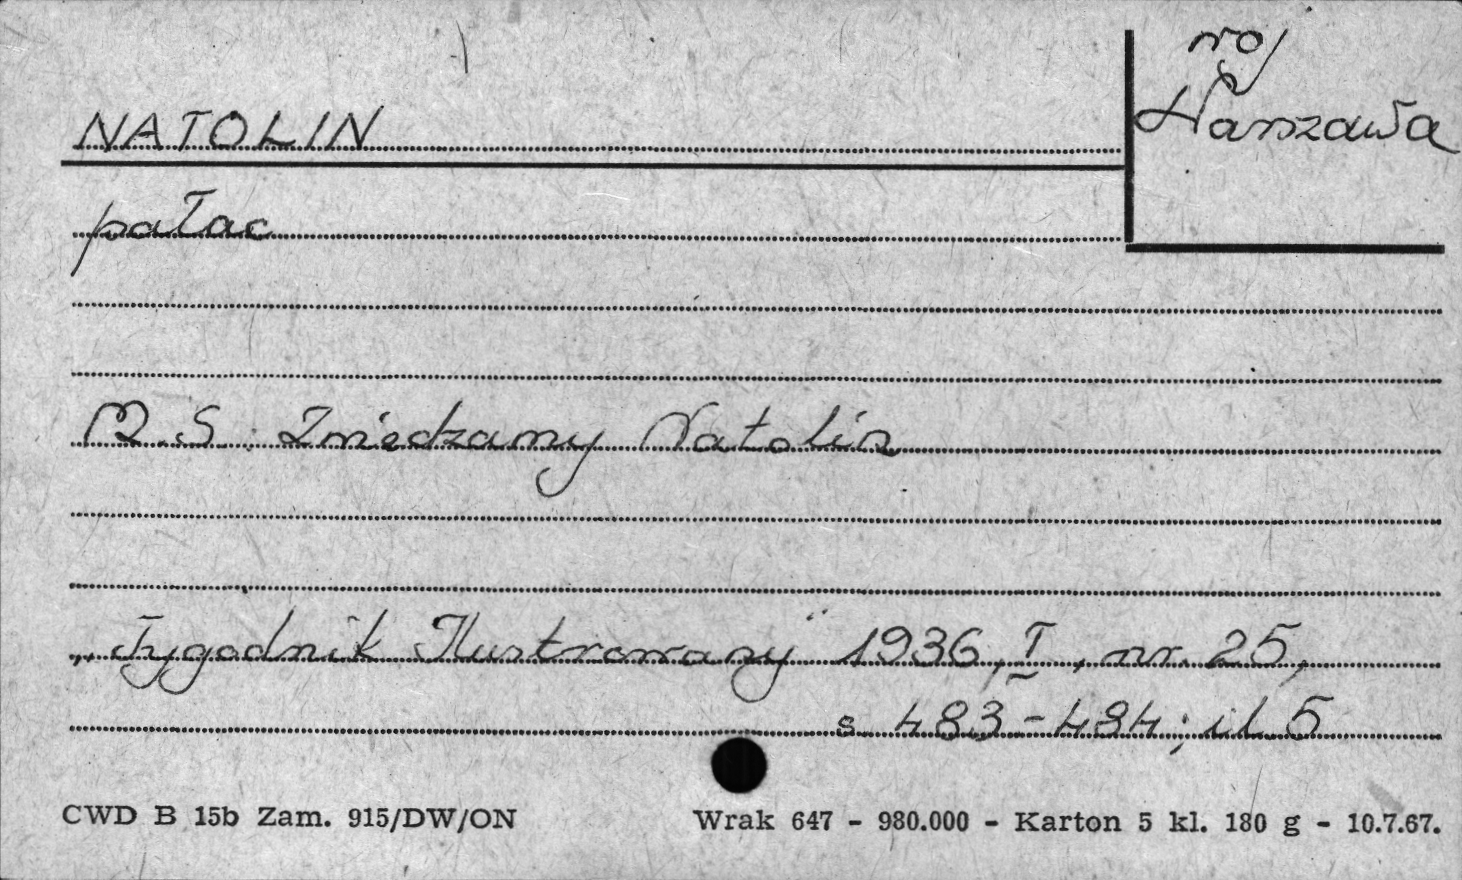 woj
Warszawa
NATOLIN
pałac
M.S. Zwiedzamy Natolin
„Tygodnik Ilustrowany" 1936, I, nr. 25,
s. 483-484; il. 5
CWD B 15b Zam. 915/DW/ON Wrak 647 - 980.000 - Karton 5 kl. 180 g - 10.7.67.